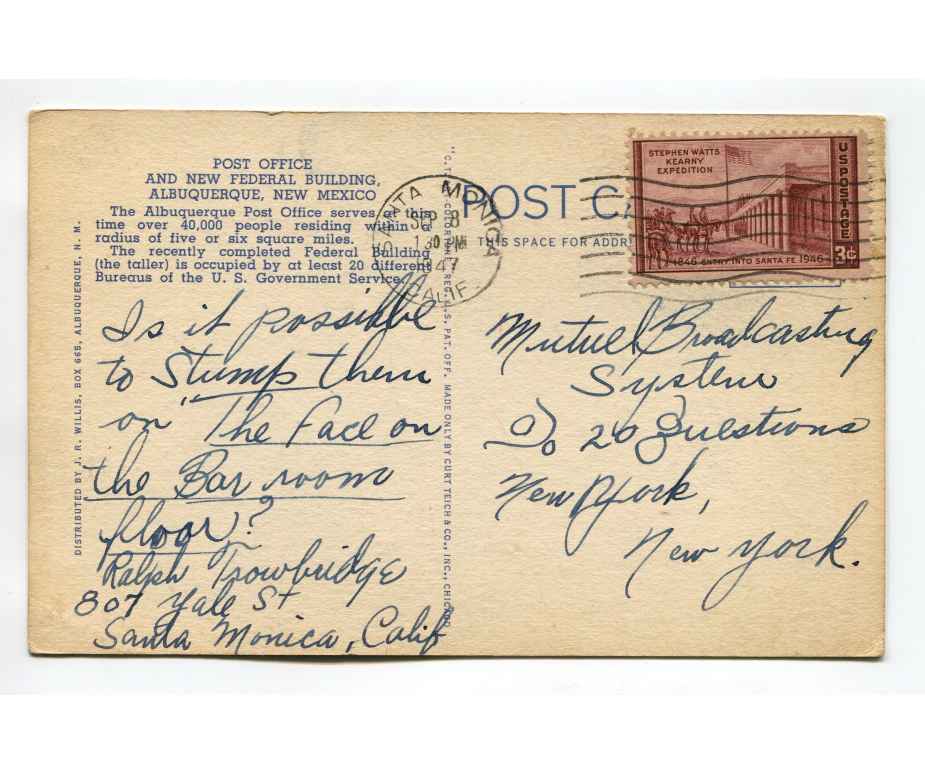 POST OFFICE
AND NEW FEDERAL BUILDING,
ALBUQUERQUE, NEW MEXICO
The Albuquerque Post Office serves a this
time over 40,000 people residing within a
radius of five or six square miles.
The recently completed Federal Building
(the taller) is occupied by at least 20 different
Bureaus of the U. S. Government Service.
DISTRIBUTED BY J. R. WILLIS, BOX 665, ALBUQUERQUE, N. M.
Is it possible
to Stump them
on The Face on
the Bar room
floor?
Ralph Trowbridge
807 Yale St
Santa Monica, Calif
REG. U. S. PAT. OFF. MADE ONLY BY CURT TEICH & CO., INC., CHICAGO
SANTA MONICA
SEP 8
130 PM
1947
CALIF
POST CA
THIS SPACE FOR ADDR
STEPHEN WATTS
KEARNY
EXPEDITION
U S POSTAGE
3¢
1846 ENTRY INTO SANTA FE 1946
Mutuel Broadcasting
System
20 Questions
New York,
New York.